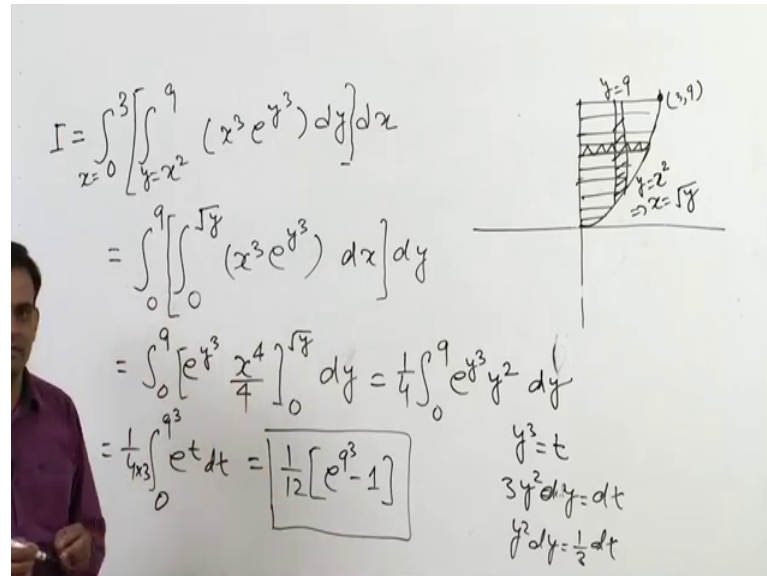 I = ∫_{x=0}^{3} [∫_{y=x²}^{9} (x³e^{y³}) dy] dx
= ∫_0^9 [∫_0^{√y} (x³e^{y³}) dx] dy
= ∫_0^9 [e^{y³} x⁴/4]_0^{√y} dy = 1/4 ∫_0^9 e^{y³} y² dy
= 1/(4×3) ∫_0^{9³} e^t dt = 1/12 [e^{9³} - 1]
y=9
(3,9)
y=x²
⇒ x=√y
y³=t
3y²dy=dt
y²dy=1/3 dt